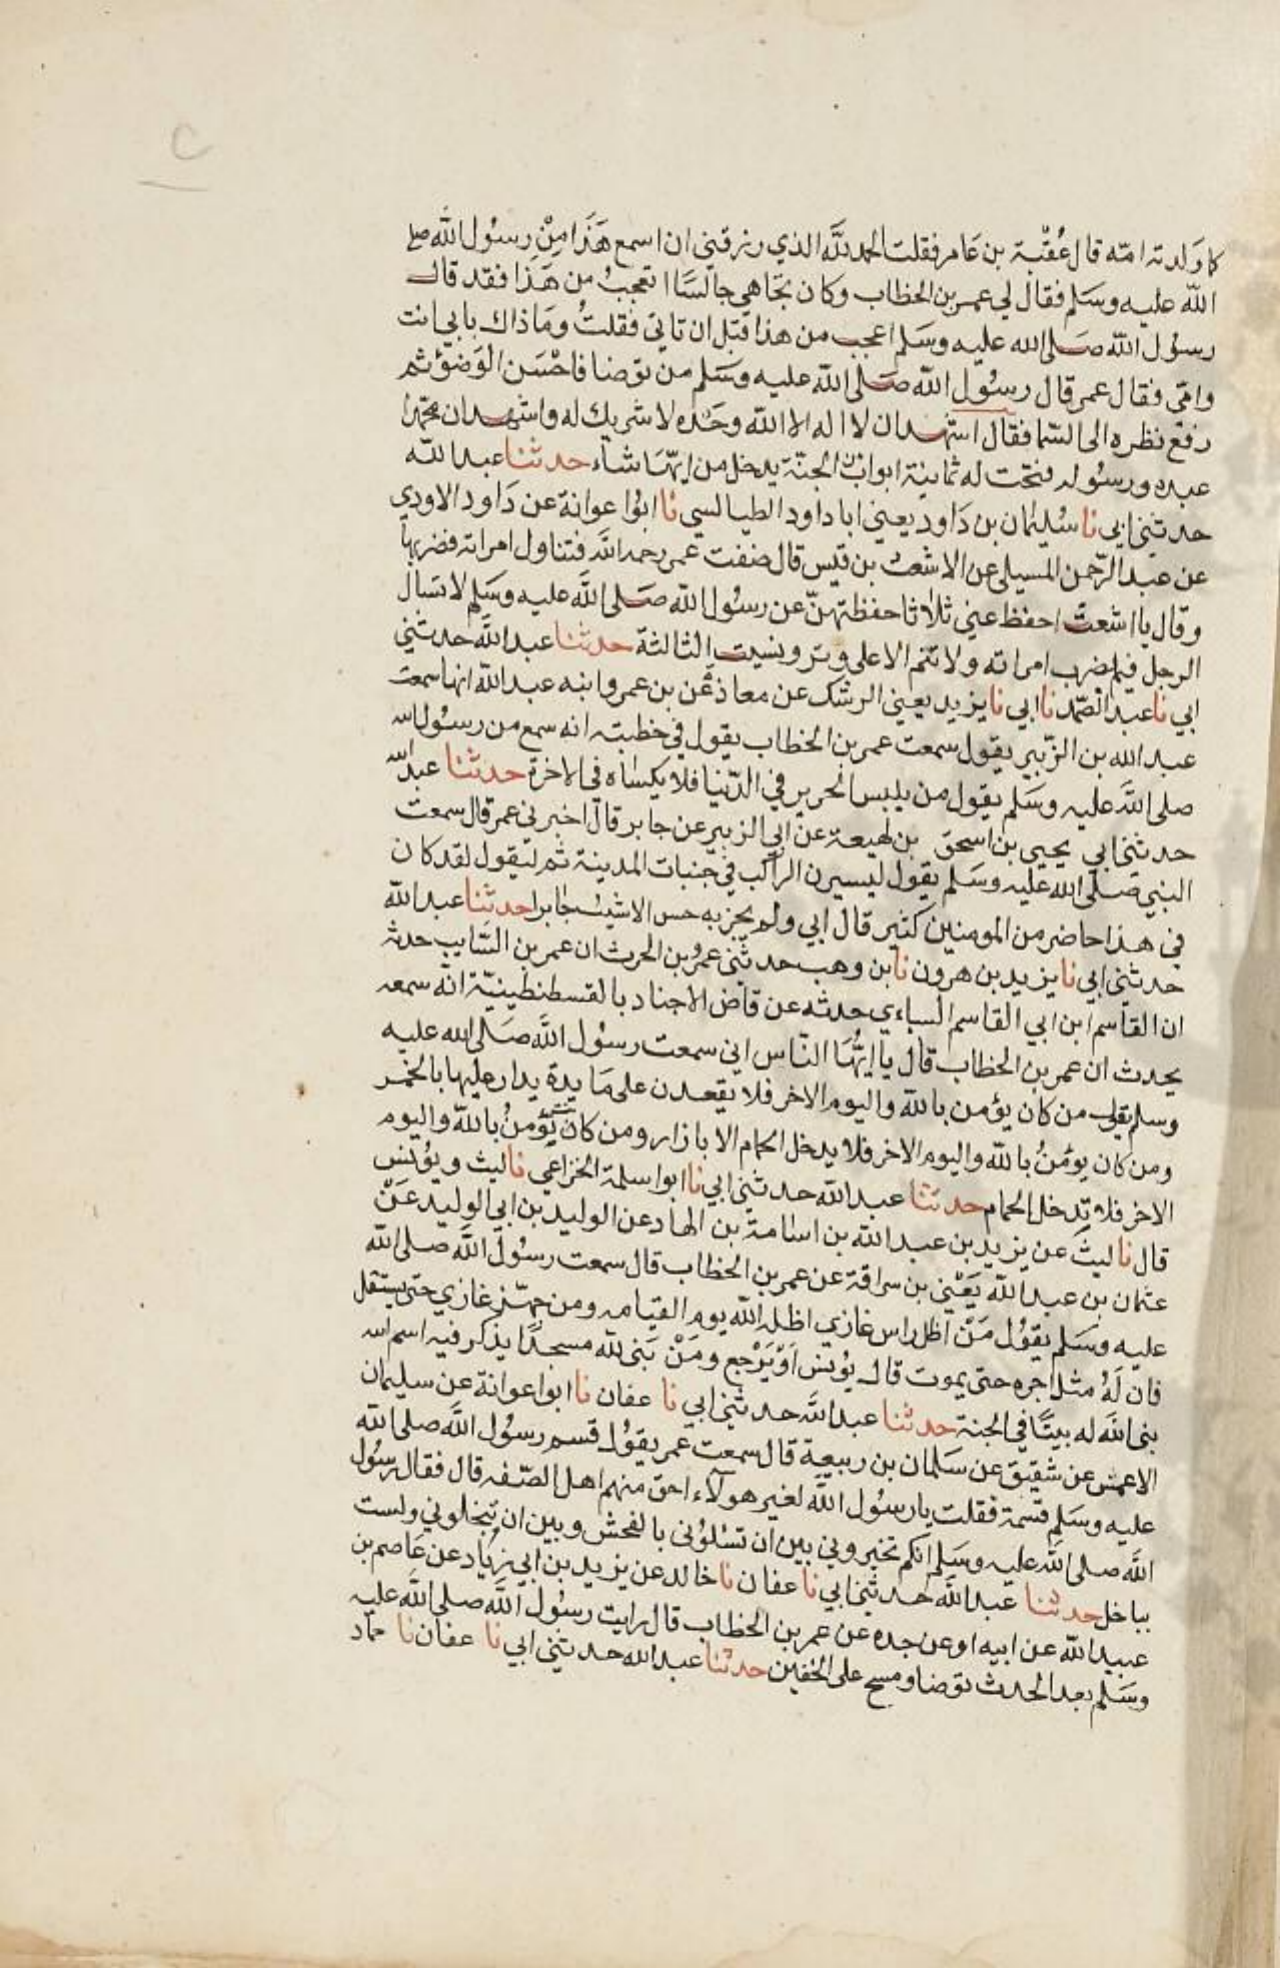 كما ولدته امه قال عقبة بن عامر فقلت الحمد لله الذي رزقني ان اسمع هذا من رسول الله صلى
الله عليه وسلم فقال لي عمر بن الخطاب وكان تجاهي جالسا اتعجب من هذا فقد قال
رسول الله صلى الله عليه وسلم اعجب من هذا قبل ان تاتي فقلت وما ذاك بابي انت
وامي فقال عمر قال رسول الله صلى الله عليه وسلم من توضا فاحسن الوضوء ثم
رفع نظره الى السما فقال اشهد ان لا اله الا الله وحده لا شريك له واشهد ان محمدا
عبده ورسوله فتحت له ثمانية ابواب الجنة يدخل من ايها شاء حدثنا عبد الله
حدثني ابي نا سليمان بن داود يعني ابا داود الطيالسي نا ابوا عوانة عن داود الاودي
عن عبد الرحمن المسيلي عن الاشعث بن قيس قال ضفت عمر رحمه الله فتناول امراته فضربها
وقال يا اشعث احفظ عني ثلاثا حفظتهن عن رسول الله صلى الله عليه وسلم لا تسال
الرجل فيم ضرب امراته ولا تنم الا على وتر ونسيت الثالثة حدثنا عبد الله حدثني
ابي نا عبد الصمد نا ابي نا يزيد يعني الرشك عن معاذة عن بن عمر وابنه عبد الله انها سمعت
عبد الله بن الزبير يقول سمعت عمر بن الخطاب يقول في خطبته انه سمع من رسول الله
صلى الله عليه وسلم يقول من يلبس الحرير في الدنيا فلا يكساه في الاخرة حدثنا عبد الله
حدثني ابي يحيى بن اسحق بن لهيعة عن ابي الزبير عن جابر قال اخبرني عمر قال سمعت
النبي صلى الله عليه وسلم يقول ليسيرن الراكب في جنبات المدينة ثم ليقول لقد كان
في هذا حاضر من المومنين كثير قال ابي ولم يجز به حسن الاشيب جابرا حدثنا عبد الله
حدثني ابي نا يزيد بن هرون نا بن وهب حدثني عمرو بن الحرث ان عمر بن السايب حدثه
ان القاسم ابن ابي القاسم السباءي حدثه عن قاض الاجناد بالقسطنطينية انه سمعه
يحدث ان عمر بن الخطاب قال يا ايها الناس اني سمعت رسول الله صلى الله عليه
وسلم يقول من كان يؤمن بالله واليوم الاخر فلا يقعدن على مايدة يدار عليها بالخمر
ومن كان يؤمن بالله واليوم الاخر فلا يدخل الحمام الا بازار ومن كان يؤمن بالله واليوم
الاخر فلا تدخل الحمام حدثنا عبد الله حدثني ابي نا ابوا سلمة الخزاعي نا ليث ويونس
قال نا ليث عن يزيد بن عبد الله بن اسامة بن الهاد عن الوليد بن ابي الوليد عن
عثمان بن عبد الله يعني بن سراقة عن عمر بن الخطاب قال سمعت رسول الله صلى الله
عليه وسلم يقول من اظل راس غازي اظله الله يوم القيامه ومن جهز غازي حتى يستقل
فان له مثل اجره حتى يموت قال يونس او يرجع ومن بنى لله مسجدا يذكر فيه اسم الله
بنى الله له بيتا في الجنة حدثنا عبد الله حدثني ابي نا عفان نا ابوا عوانة عن سليمان
الاعمش عن شقيق عن سلمان بن ربيعة قال سمعت عمر يقول قسم رسول الله صلى الله
عليه وسلم قسمة فقلت يا رسول الله لغير هولاء احق منهم اهل الصفه قال فقال رسول
الله صلى الله عليه وسلم انكم تخيروني بين ان تسلوني بالفحش وبين ان تبخلوني ولست
بباخل حدثنا عبد الله حدثني ابي نا عفان نا خالد عن يزيد بن ابي زياد عن عاصم بن
عبيد الله عن ابيه او عن جده عن عمر بن الخطاب قال رايت رسول الله صلى الله عليه
وسلم بعد الحدث توضا ومسح على الخفين حدثنا عبد الله حدثني ابي نا عفان نا حماد